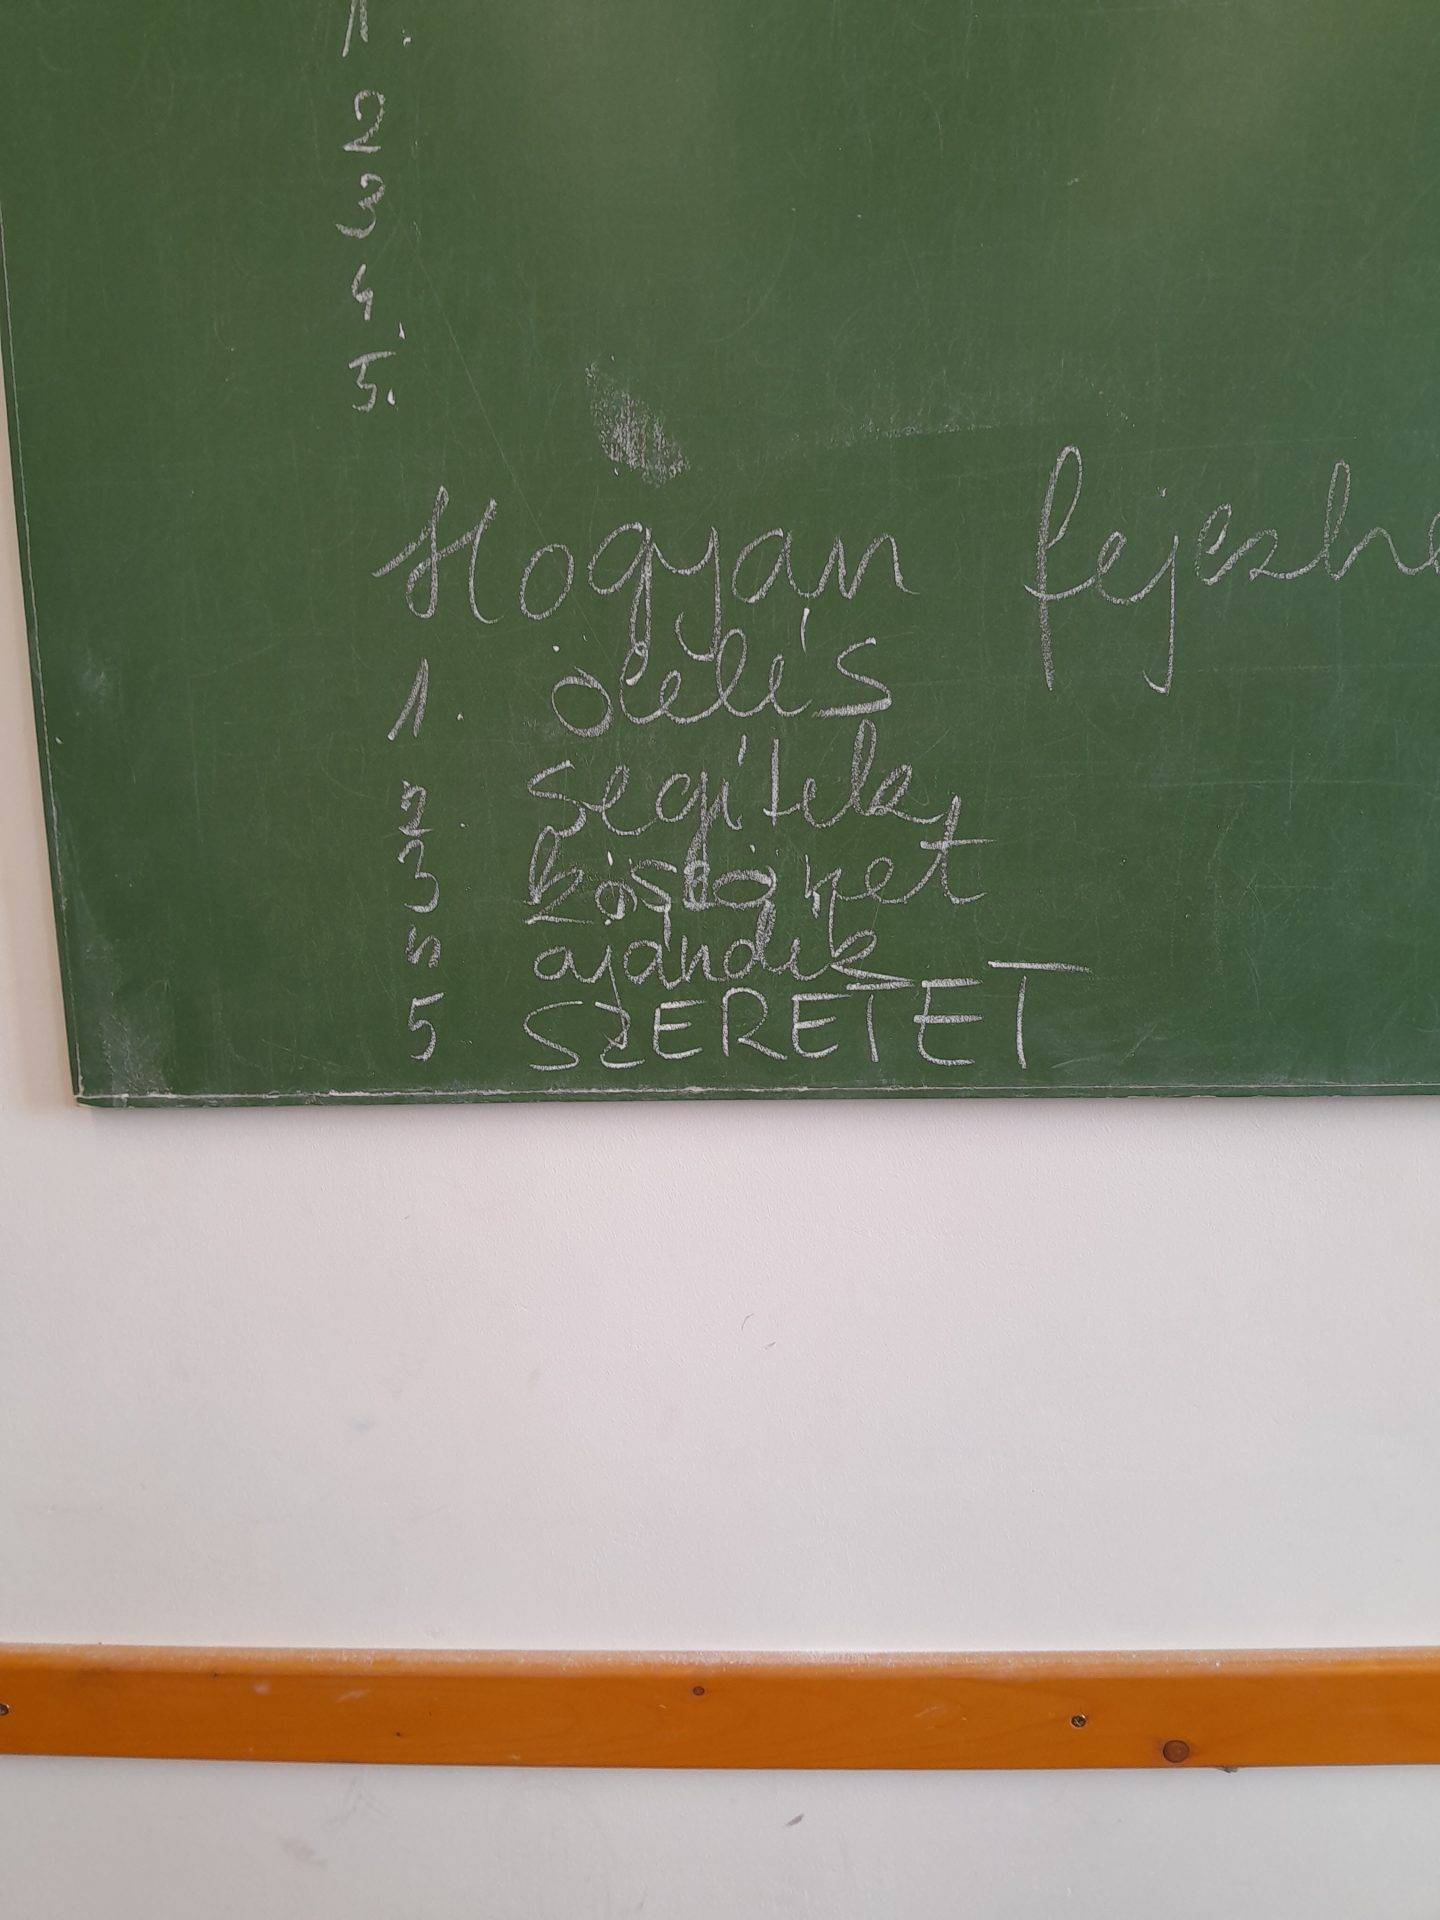 1.
2
3
4.
5.
Hogyan fejezhe
1. ölelés
2. segítek,
3
4 ajándék
5 SZERETET